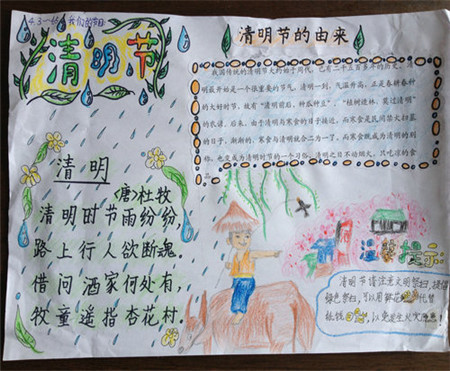 4.3一 我们的节日
清明节
清明节的由来
我国传统的清明节大约始于周代，已有二千五百多年的历史。
明最开始是一个很重要的节气，清明一到，气温升高，正是春耕春种
的大好时节，故有“清明前后，种瓜种豆”、“植树造林，莫过清明”
的农谚。后来，由于清明与寒食的日子接近，而寒食是民间禁火扫墓
的日子，渐渐的，寒食与清明就合二为一了，而寒食既成为清明的别
称，也变成为清明时节的一个习俗，清明之日不动烟火，只吃凉的食
清明
(唐)杜牧
清明时节雨纷纷，
路上行人欲断魂。
借问酒家何处有，
牧童遥指杏花村。
温馨提示
清明节请注意文明祭扫，提倡
绿色祭扫，可以用鲜花代替
纸钱，以免发生火灾